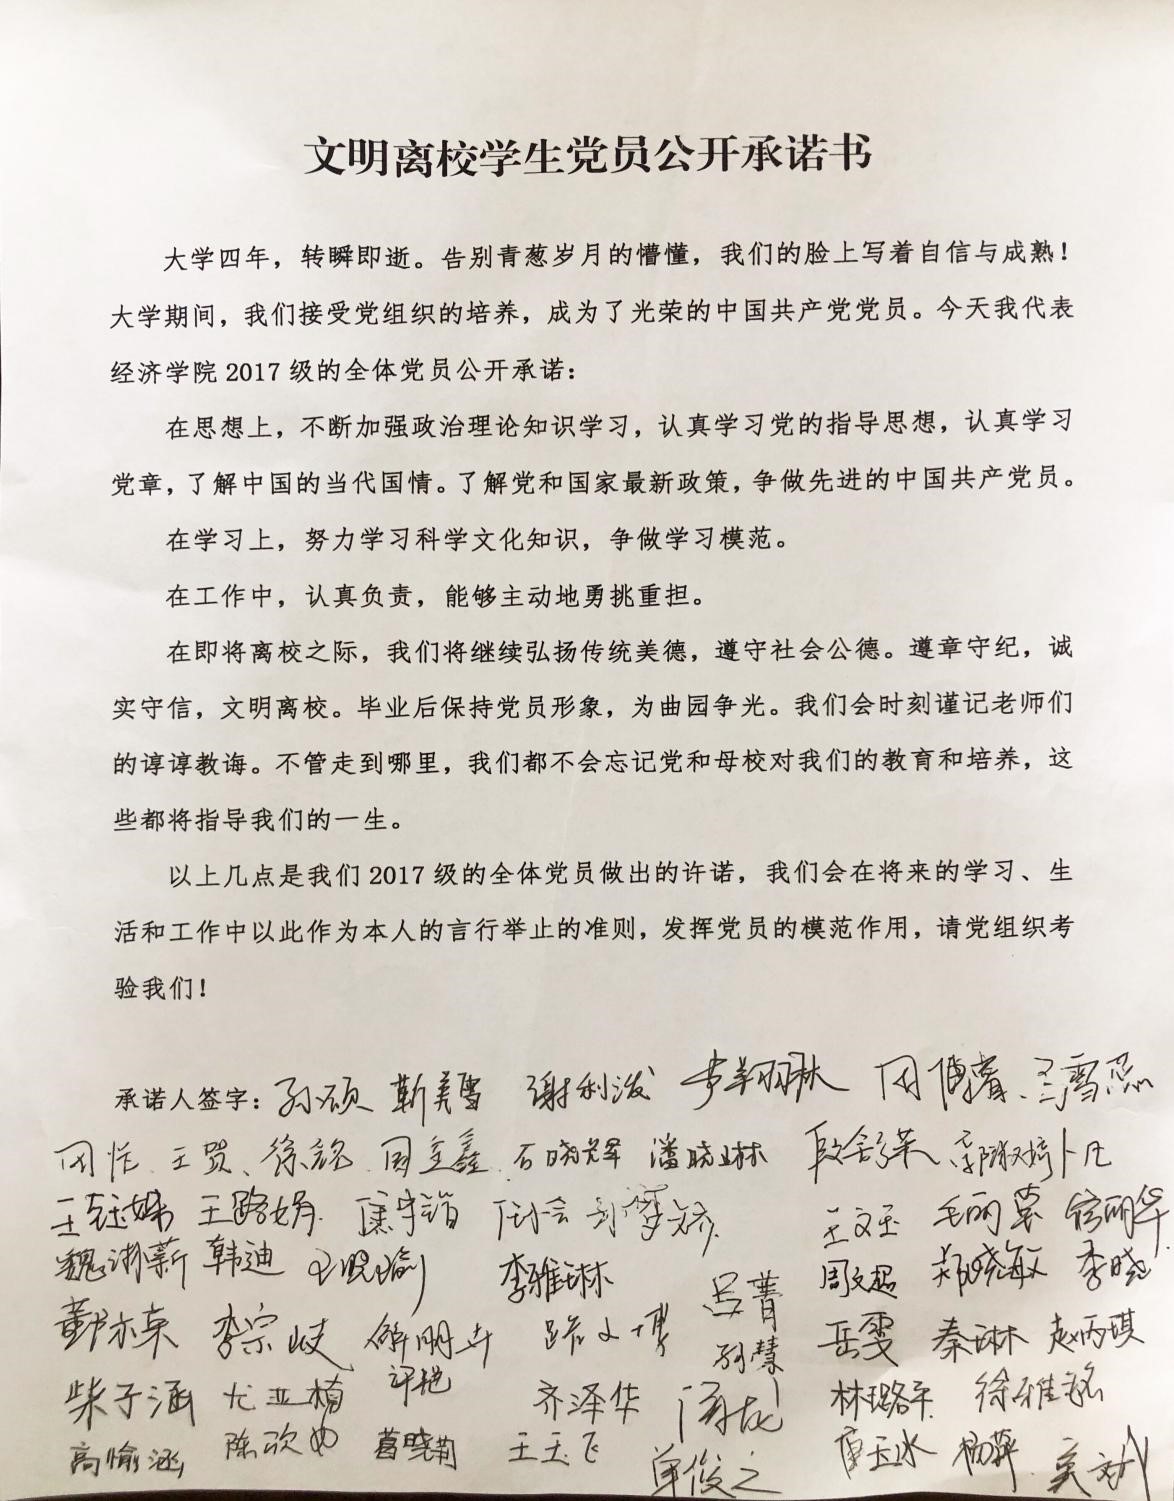 文明离校学生党员公开承诺书
大学四年，转瞬即逝。告别青葱岁月的懵懂，我们的脸上写着自信与成熟！
大学期间，我们接受党组织的培养，成为了光荣的中国共产党党员。今天我代表
经济学院 2017 级的全体党员公开承诺：
在思想上，不断加强政治理论知识学习，认真学习党的指导思想，认真学习
党章，了解中国的当代国情。了解党和国家最新政策，争做先进的中国共产党员。
在学习上，努力学习科学文化知识，争做学习模范。
在工作中，认真负责，能够主动地勇挑重担。
在即将离校之际，我们将继续弘扬传统美德，遵守社会公德。遵章守纪，诚
实守信，文明离校。毕业后保持党员形象，为曲园争光。我们会时刻谨记老师们
的谆谆教诲。不管走到哪里，我们都不会忘记党和母校对我们的教育和培养，这
些都将指导我们的一生。
以上几点是我们 2017 级的全体党员做出的许诺，我们会在将来的学习、生
活和工作中以此作为本人的言行举止的准则，发挥党员的模范作用，请党组织考
验我们！
承诺人签字：孙硕 靳美雪 谢利泼
王贺、徐铭 石晓辉 潘晓琳 卜凡
王路娟 王文玉 毛丽君
韩迪 李雅琳 周文超 郑晓敏 李晓
李宗岐 解明卉 吕菁 岳雯 秦琳 赵丙琪
孙慧
柴子涵 尤亚楠 许艳 齐泽华 林璐平 徐雅铭
高愉涵 陈欣如 葛晓莉 王玉飞 单俊之 唐玉冰 杨萍